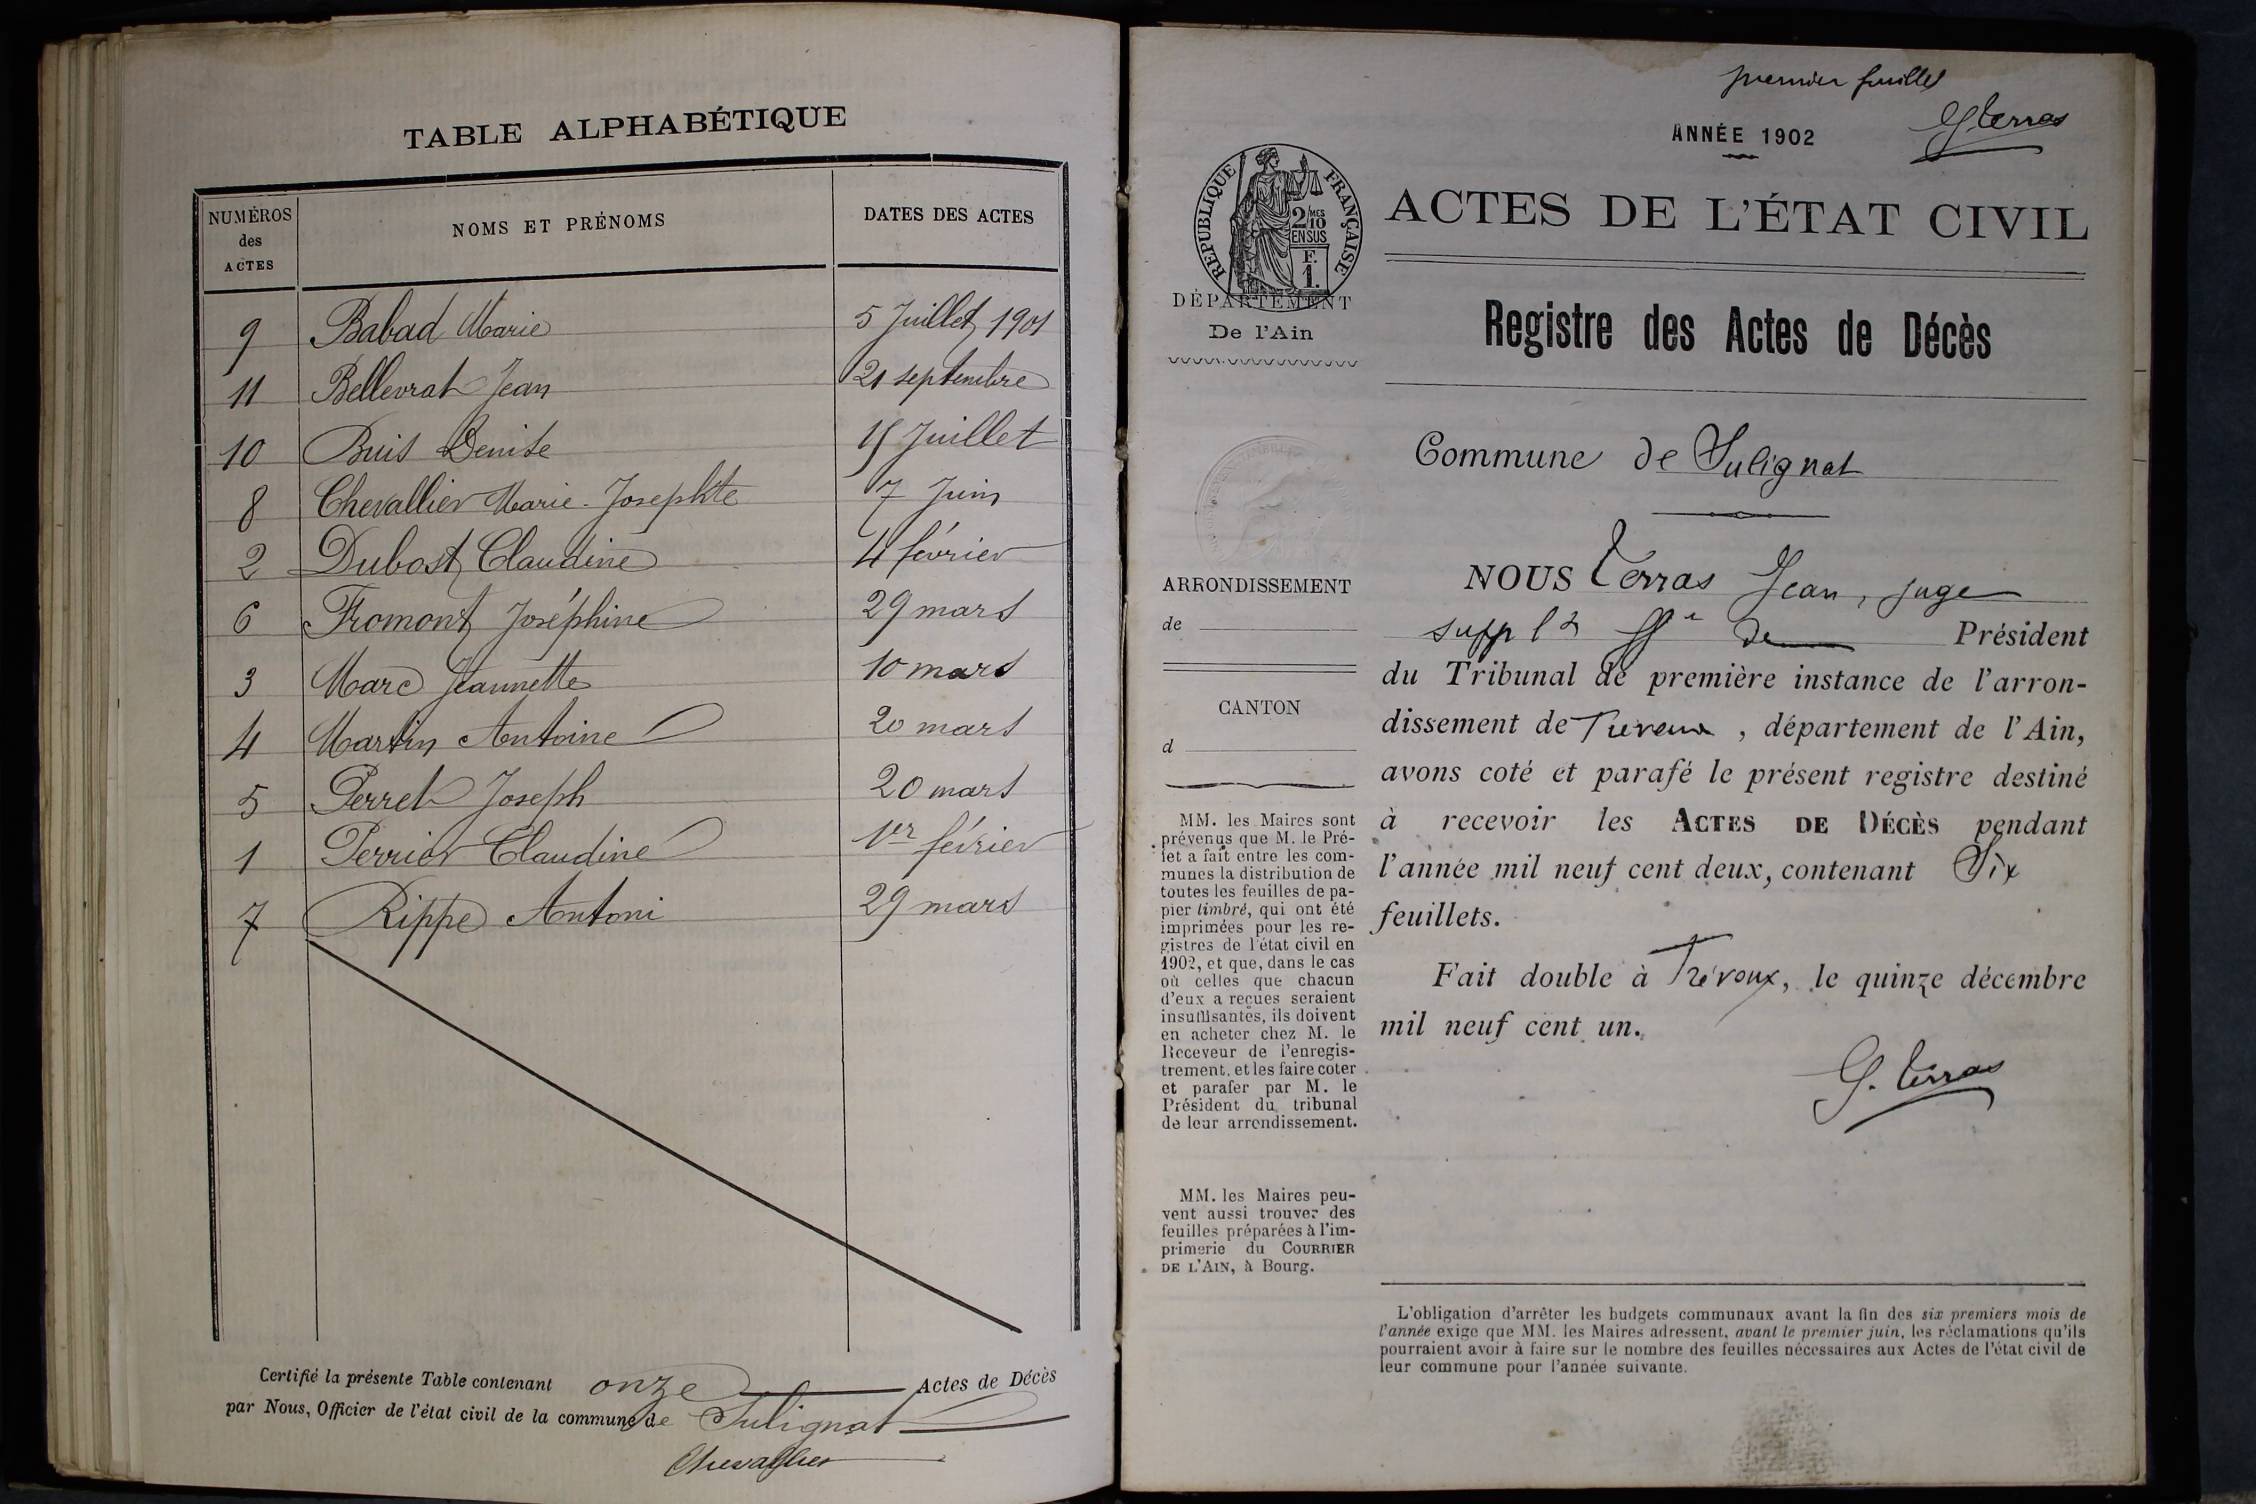 TABLE ALPHABÉTIQUE
NUMÉROS
des
ACTES
NOMS ET PRÉNOMS
DATES DES ACTES
9 Babad Marie 5 Juillet 1901
11 Bellevrat Jean 21 septembre
10 Buis Denise 15 Juillet
8 Chevallier Marie-Josephte 7 Juin
2 Dubost Claudine 4 février
6 Fromont Joséphine 29 mars
3 Marc Jeannette 10 mars
4 Martin Antoine 20 mars
5 Perret Joseph 20 mars
1 Perrier Claudine 1er février
7 Rippe Antoni 29 mars
Certifié la présente Table contenant onze Actes de Décès
par Nous, Officier de l'état civil de la commune de Sulignat
Chevallier
premier feuillet
G. Terras
ANNÉE 1902
RÉPUBLIQUE FRANÇAISE
2/10 MES
EN SUS
F.
1.
ACTES DE L'ÉTAT CIVIL
DÉPARTEMENT
De l'Ain
Registre des Actes de Décès
Commune de Sulignat
ARRONDISSEMENT
de
CANTON
d
MM. les Maires sont
prévenus que M. le Pré-
fet a fait entre les com-
munes la distribution de
toutes les feuilles de pa-
pier timbré, qui ont été
imprimées pour les re-
gistres de l'état civil en
1902, et que, dans le cas
où celles que chacun
d'eux a reçues seraient
insuffisantes, ils doivent
en acheter chez M. le
Receveur de l'enregis-
trement, et les faire coter
et parafer par M. le
Président du tribunal
de leur arrondissement.
MM. les Maires peu-
vent aussi trouver des
feuilles préparées à l'im-
primerie du COURRIER
DE L'AIN, à Bourg.
NOUS Terras Jean, juge
suppl de Président
du Tribunal de première instance de l'arron-
dissement de Trévoux, département de l'Ain,
avons coté et parafé le présent registre destiné
à recevoir les ACTES DE DÉCÈS pendant
l'année mil neuf cent deux, contenant Six
feuillets.
Fait double à Trévoux, le quinze décembre
mil neuf cent un.
G. Terras
L'obligation d'arrêter les budgets communaux avant la fin des six premiers mois de
l'année exige que MM. les Maires adressent, avant le premier juin, les réclamations qu'ils
pourraient avoir à faire sur le nombre des feuilles nécessaires aux Actes de l'état civil de
leur commune pour l'année suivante.